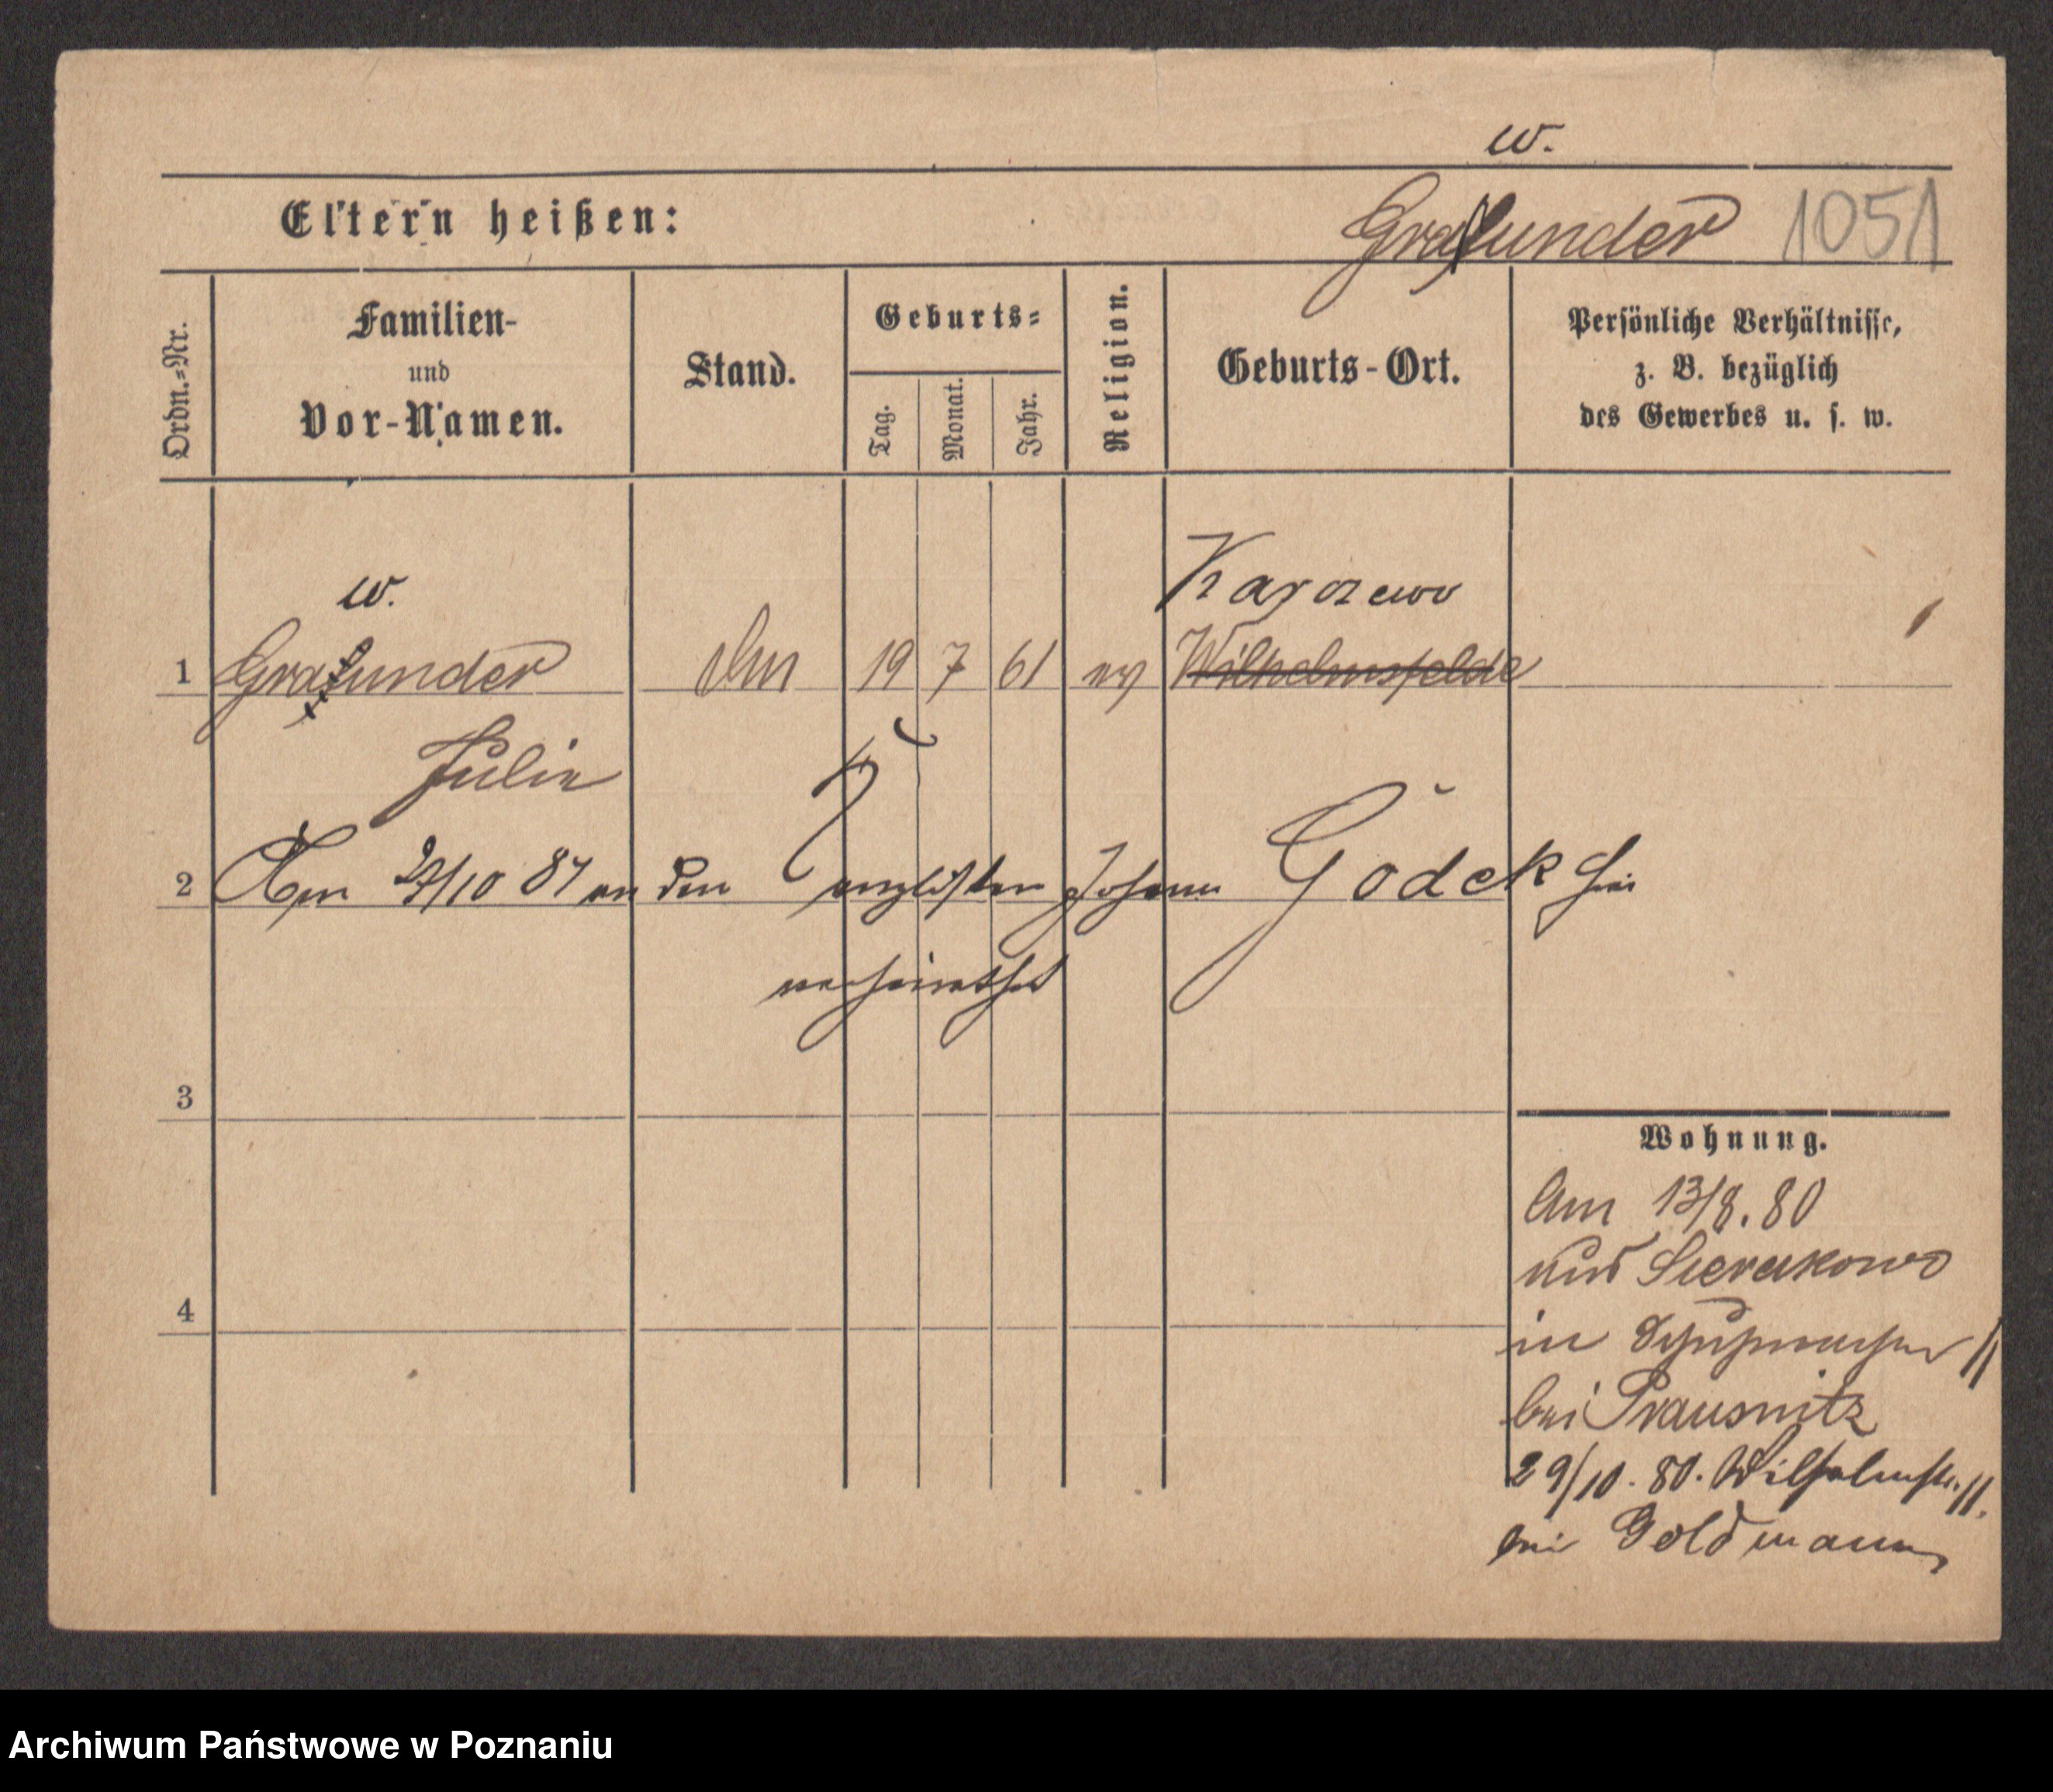 w.
Eltern heißen: Grafunder 1051
Ordn.-Nr. Familien- und Vor-Namen. Stand. Geburts- Tag. Monat. Jahr. Religion. Geburts-Ort. Persönliche Verhältnisse, z. B. bezüglich des Gewerbes u. s. w.
w. Karczewo
1 Grafunder 19 7 61 ev Wilhelmsfelde
Julie
2 Am 27/10 87 an den Kanzlisten Johann Gödek hier
verheirathet
3
Wohnung.
Am 13/8. 80
aus Sierakowo
4
in
bei Prausnitz
29/10. 80. Wilhelmstr. 11.
bei Goldmann
Archiwum Państwowe w Poznaniu